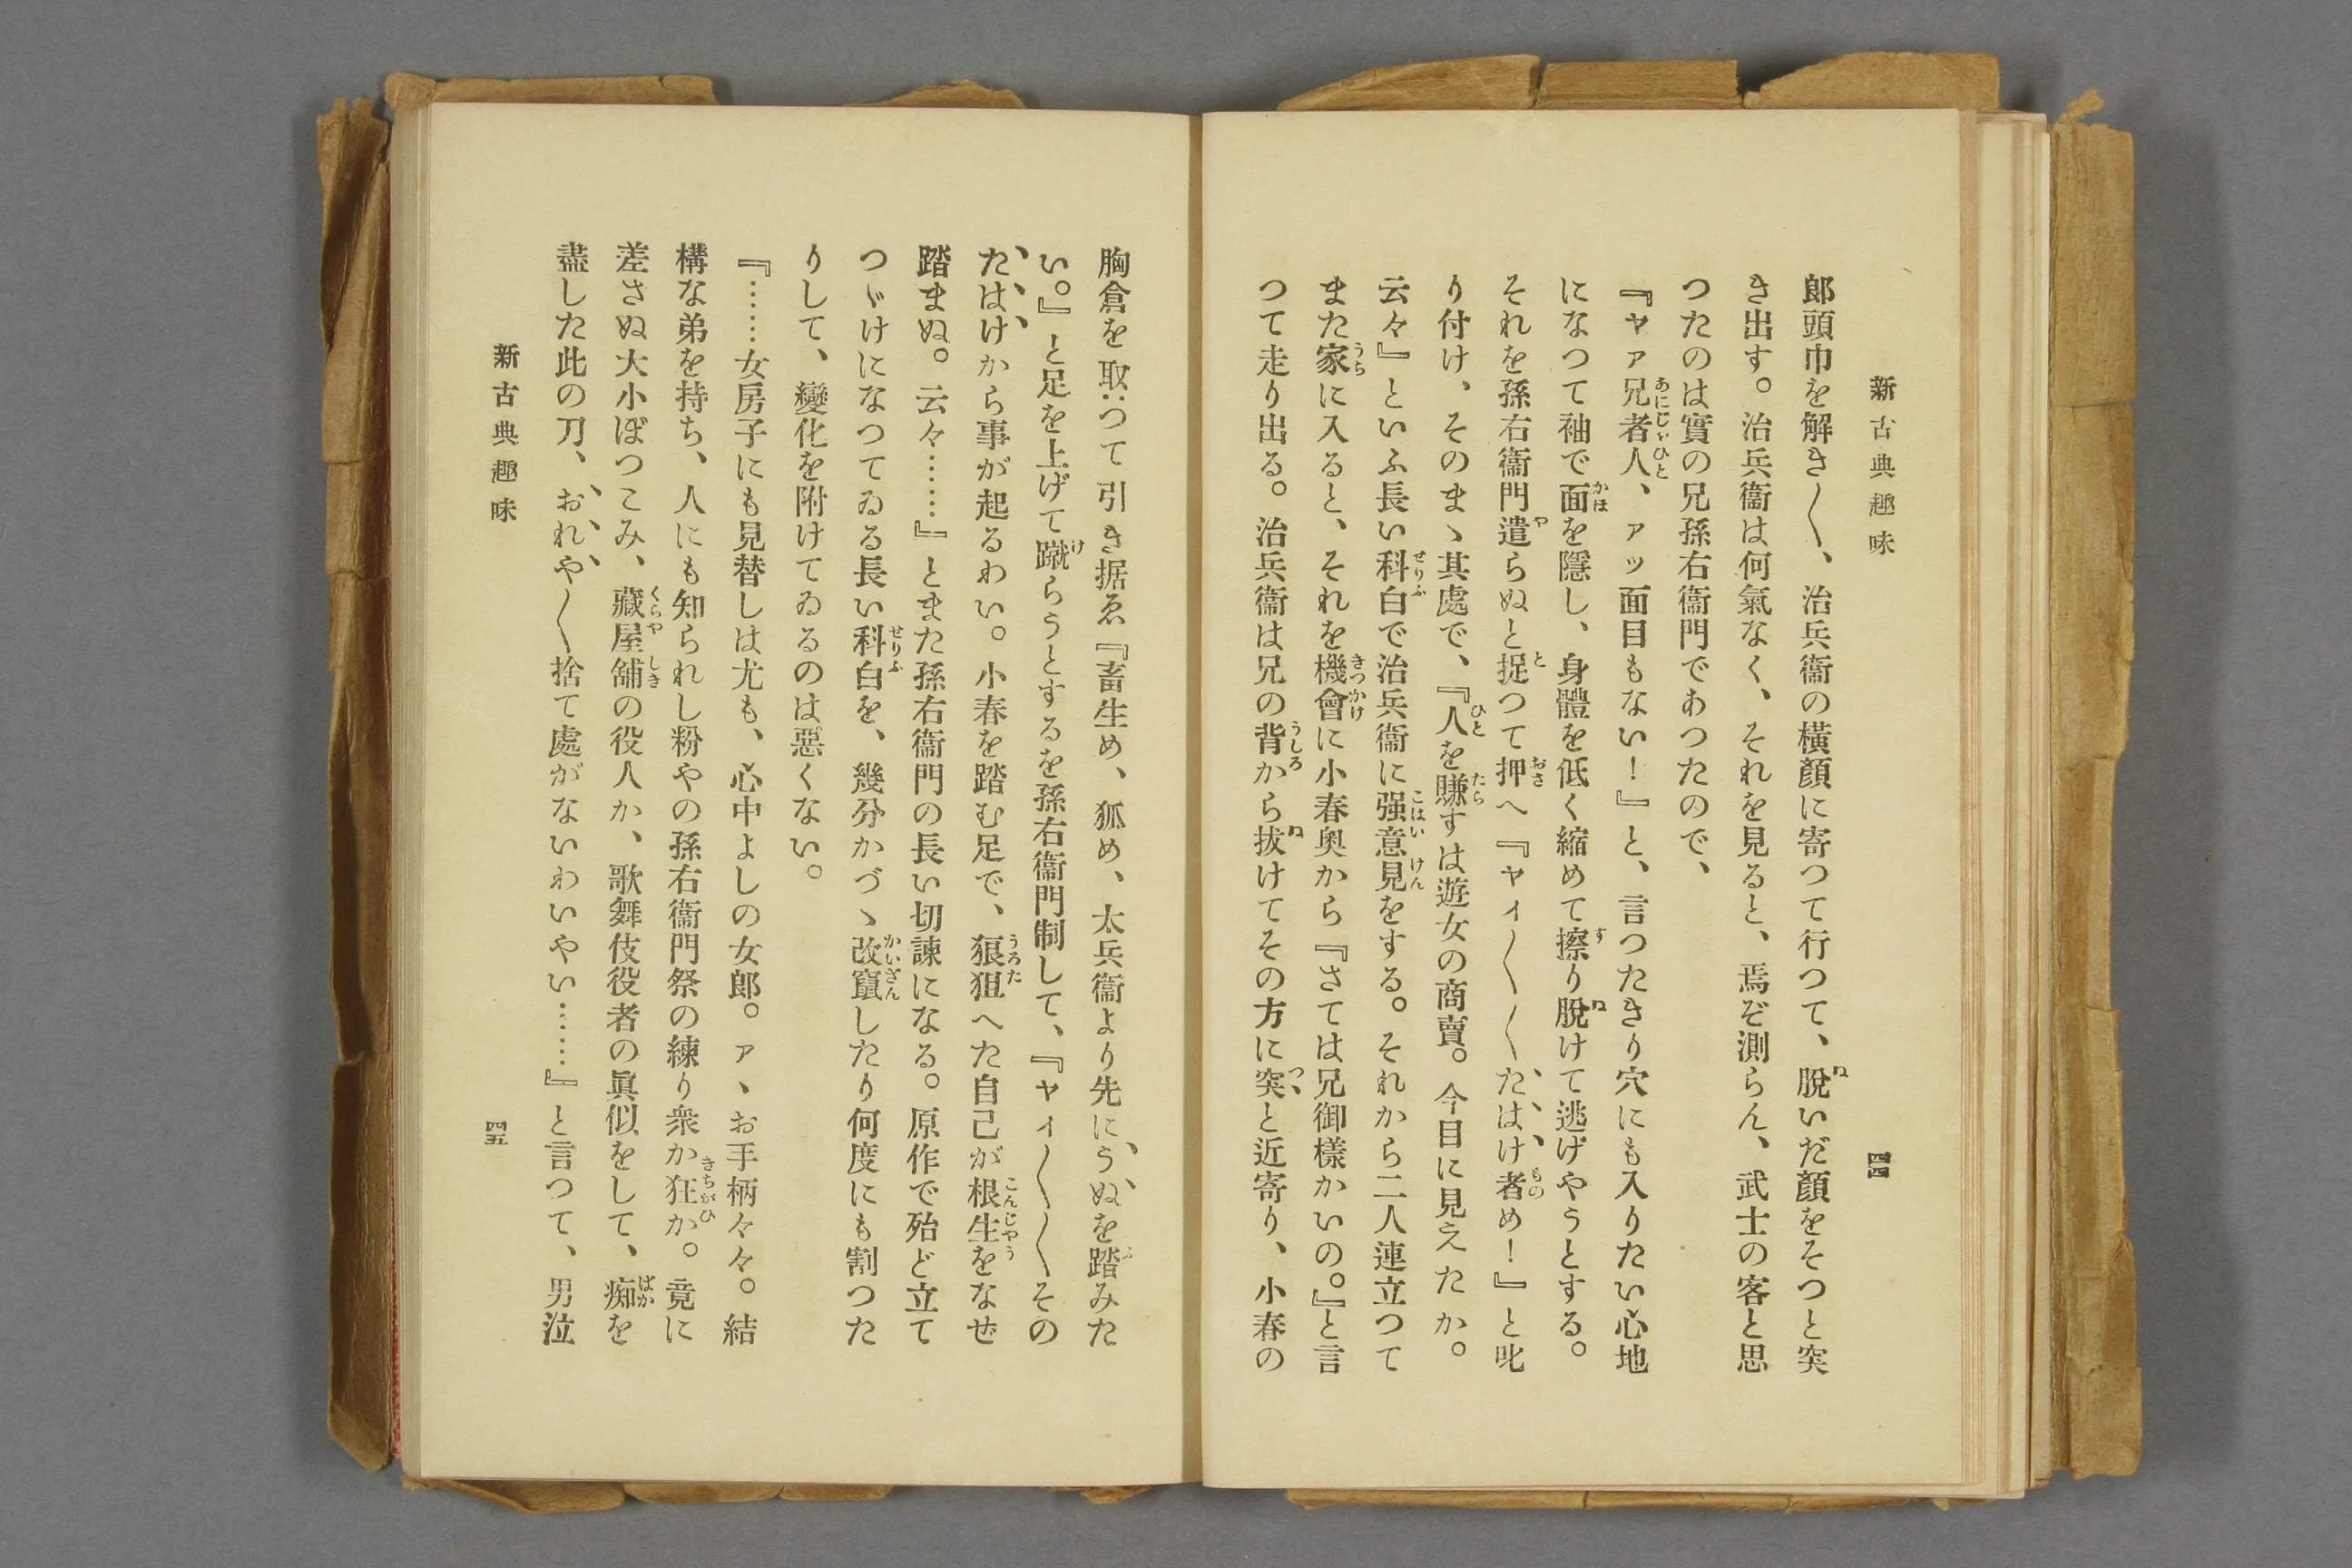 新古典趣味
四四
郎頭巾を解き〱、治兵衞の橫顏に寄つて行つて、脫いだ顏をそつと突
き出す。治兵衞は何氣なく、それを見ると、焉ぞ測らん、武士の客と思
つたのは實の兄孫右衞門であつたので、
『ヤァ兄者人、アッ面目もない！』と、言つたきり穴にも入りたい心地
になつて袖で面を隱し、身體を低く縮めて擦り脫けて逃げやうとする。
それを孫右衞門遣らぬと捉つて押へ『ヤィ〱〱たはけ者め！』と叱
り付け、そのまゝ其處で、『人を賺すは遊女の商賣。今目に見えたか。
云々』といふ長い科白で治兵衞に强意見をする。それから二人連立つて
また家に入ると、それを機會に小春奥から『さては兄御樣かいの。』と言
つて走り出る。治兵衞は兄の背から拔けてその方に突と近寄り、小春の
胸倉を取つて引き据ゑ『畜生め、狐め、太兵衞より先にうぬを踏みた
い。』と足を上げて蹴らうとするを孫右衞門制して、『ヤィ〱〱その
たはけから事が起るわい。小春を踏む足で、狼狙へた自己が根生をなぜ
踏まぬ。云々……』とまた孫右衞門の長い切諫になる。原作で殆ど立て
つゞけになつてゐる長い科白を、幾分かづゝ改竄したり何度にも割つた
りして、變化を附けてゐるのは惡くない。
『……女房子にも見替しは尤も、心中よしの女郎。アヽお手柄々々。結
構な弟を持ち、人にも知られし粉やの孫右衞門祭の練り衆か狂か。竟に
差さぬ大小ぼつこみ、藏屋舖の役人か、歌舞伎役者の眞似をして、痴を
盡した此の刀、おれや〱捨て處がないわいやい……』と言つて、男泣
新古典趣味
四五